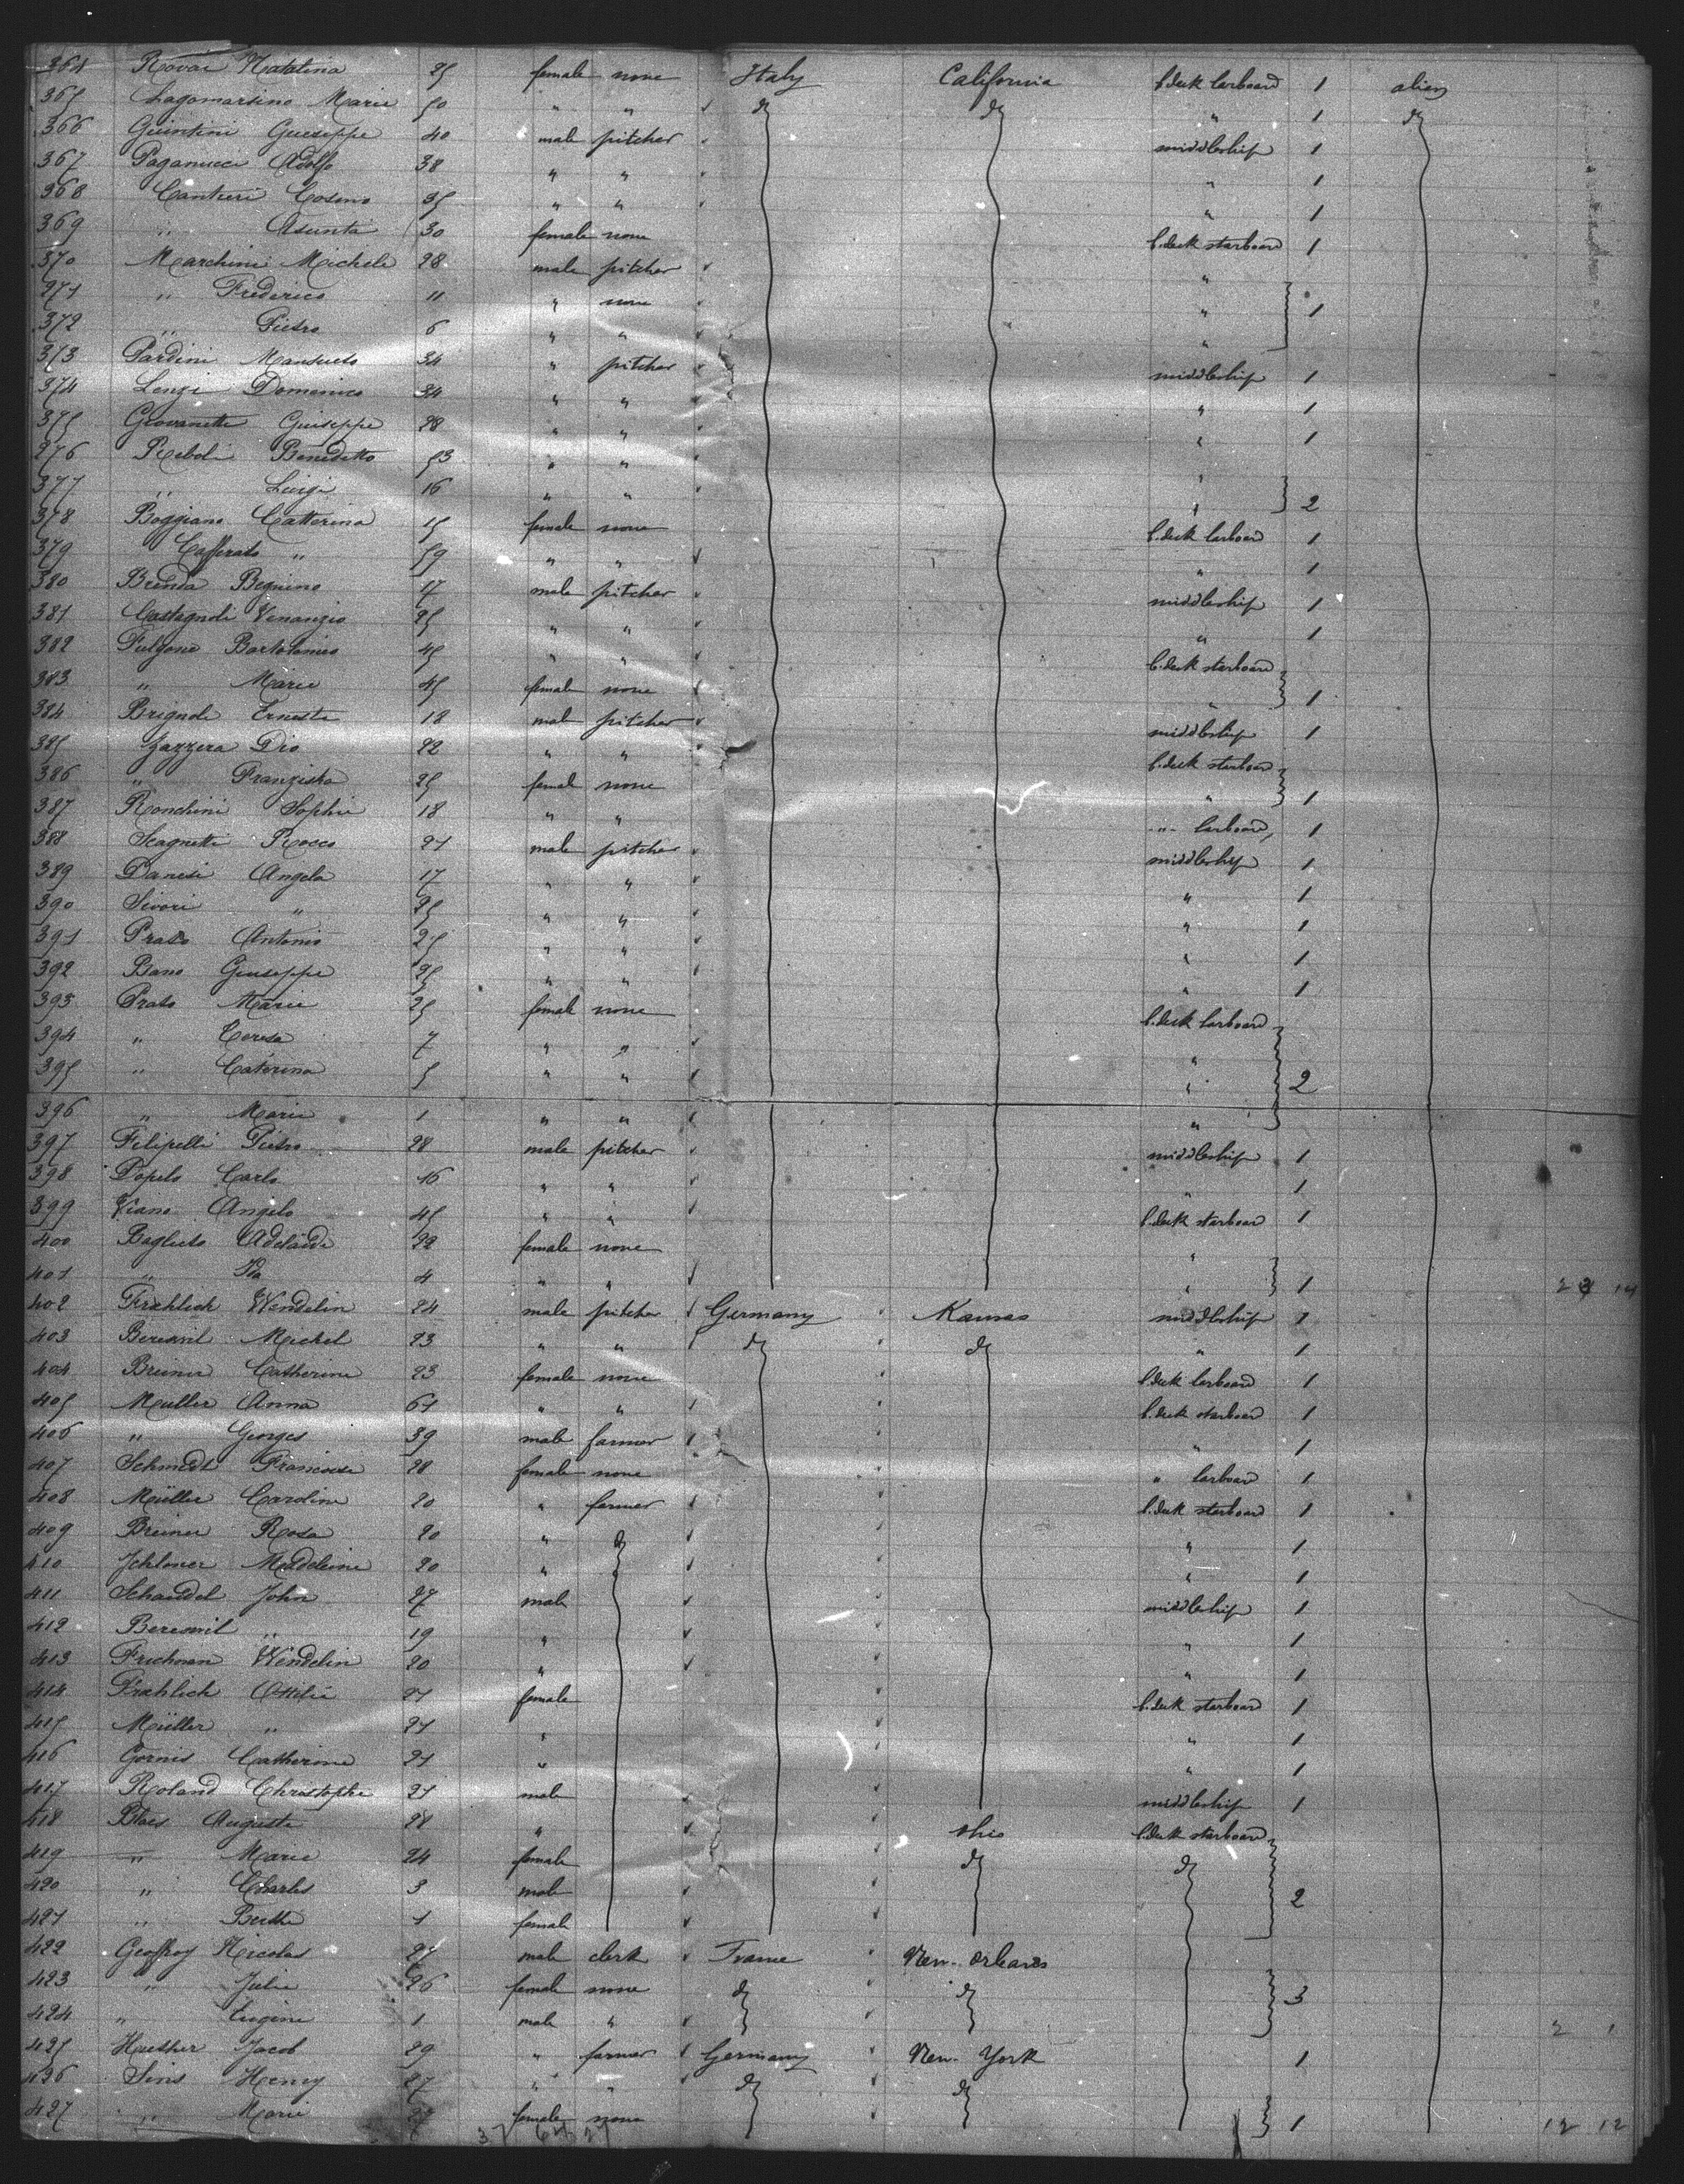 364 Rovai Natalina 25 female none Italy California b.deck larboard 1 alien
365 Lagomarsino Marie 50 " " do do " 1 do
366 Guintini Gueseppe 40 male pitcher middleship 1
367 Paganucci Adolfo 38 " " " 1
368 Cantieri Cosimo 35 " " " 1
369 " Asunta 30 female none b.deck starboard 1
370 Marchini Michele 28 male pitcher "
371 " Frederico 11 " none " 1
372 " Pietro 6 " " "
373 Pardini Mansueto 34 " pitcher middleship 1
374 Lenzi Domenico 34 " " " 1
375 Giovanetti Guiseppe 28 " " " 1
376 Reboli Benedetto 53 " " "
377 " Luigi 16 " " " 2
378 Boggiano Catterina 15 female none b.deck larboard 1
379 Cafferato " 59 " " " 1
380 Brenda Begnino 17 male pitcher middleship 1
381 Castagnoli Venanzio 25 " " " 1
382 Fulgone Bartolomeo 45 " " b.deck starboard
383 " Marie 45 female none " 1
384 Brignole Ernesto 18 male pitcher middleship 1
385 Gazzera Dio 22 " " b.deck starboard
386 " Franziska 25 female none " 1
387 Ronchini Sophie 18 " " " larboard 1
388 Scagnetti Rocco 21 male pitcher middleship 1
389 Danesi Angelo 17 " " " 1
390 Sivori " 25 " " " 1
391 Prato Antonio 25 " " " 1
392 Bano Giuseppe 25 " " " 1
393 Prato Marie 25 female none b.deck larboard
394 " Teresa 7 " " "
395 " Caterina 5 " " " 2
396 " Marie 1 " " "
397 Filipelli Pietro 28 male pitcher middleship 1
398 Popelo Carlo 16 " " " 1
399 Viano Angelo 45 " " b.deck starboard 1
400 Baglieto Adelaide 22 female none "
401 " Ida 4 " " " 1
402 Frohlich Wendelin 24 male pitcher Germany Kansas middleship 1
403 Bereswil Michel 23 " " do do " 1
404 Breiner Catherine 23 female none b.deck larboard 1
405 Muller Anna 61 " " b.deck starboard 1
406 " Georges 39 male farmer " 1
407 Schmidt Francoise 28 female none " larboard 1
408 Müller Caroline 20 " farmer b.deck starboard 1
409 Breiner Rosa 20 " do " 1
410 Madeleine 20 " " 1
411 Schaudel John 27 male middleship 1
412 Bereswil " 19 " " 1
413 Wendelin 20 " " 1
414 Frohlich Ottilie 21 female b.deck starboard 1
415 Müller " 21 " " 1
416 Gornis Catherine 21 " " 1
417 Roland Christophe 21 male middleship 1
418 Blaes Auguste 28 " Ohio b.deck starboard
419 " Marie 24 female do do
420 " Charles 3 male 2
421 " Berthe 1 female
422 Geoffroy Nicolas 27 male clerk France New-Orleans
423 " Julie 26 female none do do 3
424 " Eugine 1 male " 2 1
425 Huether Jacob 29 " farmer Germany New-York 1
426 Sins Henry 27 " " do do
427 " Marie 27 female none 1 12 12